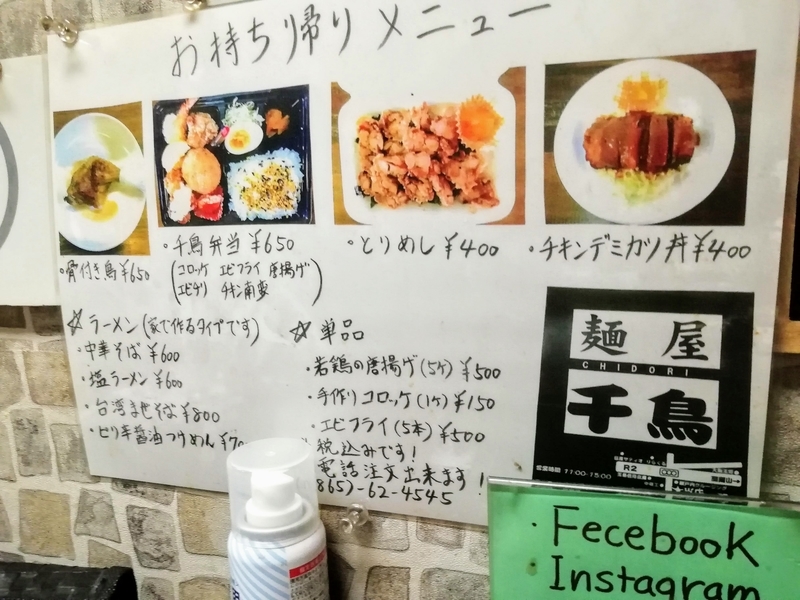 お持ち帰りメニュー
・骨付き鳥¥650
・千鳥弁当¥650
(コロッケ エビフライ 唐揚げ
エビチリ チキン南蛮)
・とりめし¥400
・チキンデミカツ丼¥400
☆ラーメン(家で作るタイプです)
・中華そば¥600
・塩ラーメン¥600
・台湾まぜそば¥800
・ピリ辛醤油つけめん¥70
☆単品
・若鶏の唐揚げ(5ケ)¥500
・手作りコロッケ(1ケ)¥150
・エビフライ(5本)¥500
税込みです!
電話注文出来ます!
865)-62-4545
麺屋
CHIDORI
千鳥
営業時間 11:00-15:00
R2
・Fecebook
Instagram